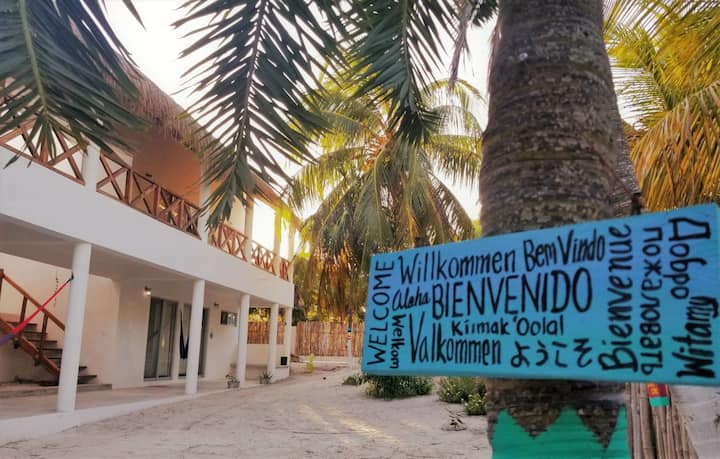 WELCOME
Willkommen
Bem Vindo
Aloha
BIENVENIDO
Kimak 'Oolal
Welkom
Valkommen
ようこそ
Bienvenue
Добро
пожаловать
Witamy